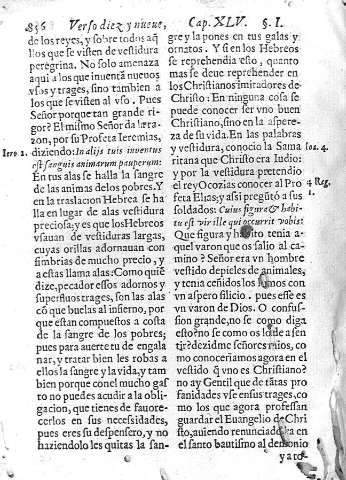 856 Verso diez y nueue, Cap. XLV. §. I.
de los reyes, y sobre todos aq̃
llos que se visten de vestidura
peregrina. No solo amenaza
aqui a los que inuentã nueuos
vsos y trages, sino tambien a
los que se visten al vso. Pues
Señor porque tan grande ri-
gor? El mismo Señor da la ra-
zon, por su Profeta Ieremias,
Iere 2. diziendo: In alis tuis inuentus
est sanguis animarum pauperum:
En tus alas se halla la sangre
de las animas de los pobres. Y
en la traslacion Hebrea se ha
lla en lugar de alas vestidura
preciosa: y es que los Hebreos
vsauan de vestiduras largas,
cuyas orillas adornauan con
fimbrias de mucho precio, y
a estas llama alas: Como quiẽ
dize, pecador essos adornos y
superfluos trages, son las alas
cõ que buelas al infierno, por
que estan compuestos a costa
de la sangre de los pobres;
pues para auerte tu de engala
nar, y tratar bien les robas a
ellos la sangre y la vida, y tam
bien porque con el mucho gas
to no puedes acudir a la obli-
gacion, que tienes de fauore-
cerlos en sus necessidades,
pues eres su despensero, y no
haziendolo les quitas la san-
gre y la pones en tus galas y
ornatos. Y si en los Hebreos
se reprehendia esto, quanto
mas se deue reprehender en
los Christianos imitadores de
Christo: En ninguna cosa se
puede conocer ser vno buen
Christiano, sino en la aspere-
za de su vida. En las palabras
y vestidura, conocio la Sama Ioa. 4.
ritana que Christo era Iudio:
y por la vestidura pretendio
el rey Ocozias conocer al Pro 4 Reg.
feta Elias; y assi preguntò a sus 1.
soldados: Cuius figuræ & habi-
tus est vir ille qui occurrit vobis?
Que figura y habito tenia a-
quel varon que os salio al cami
no? Señor era vn hombre
vestido de pieles de animales,
y tenia ceñidos los lomos con
vn aspero silicio. pues esse es
vn varon de Dios. O confus-
sion grande, no se como diga
esto? no se como os lo de a sen
tir? dezidme señores mios, co
mo conoceriamos agora en el
vestido q̃ vno es Christiano?
no ay Gentil que de tãtas pro
fanidades vse en sus trages, co
mo los que agora professan
guardar el Euangelio de Chri
sto, auiendo renunciado en
el santo bautismo al demonio
y a to-